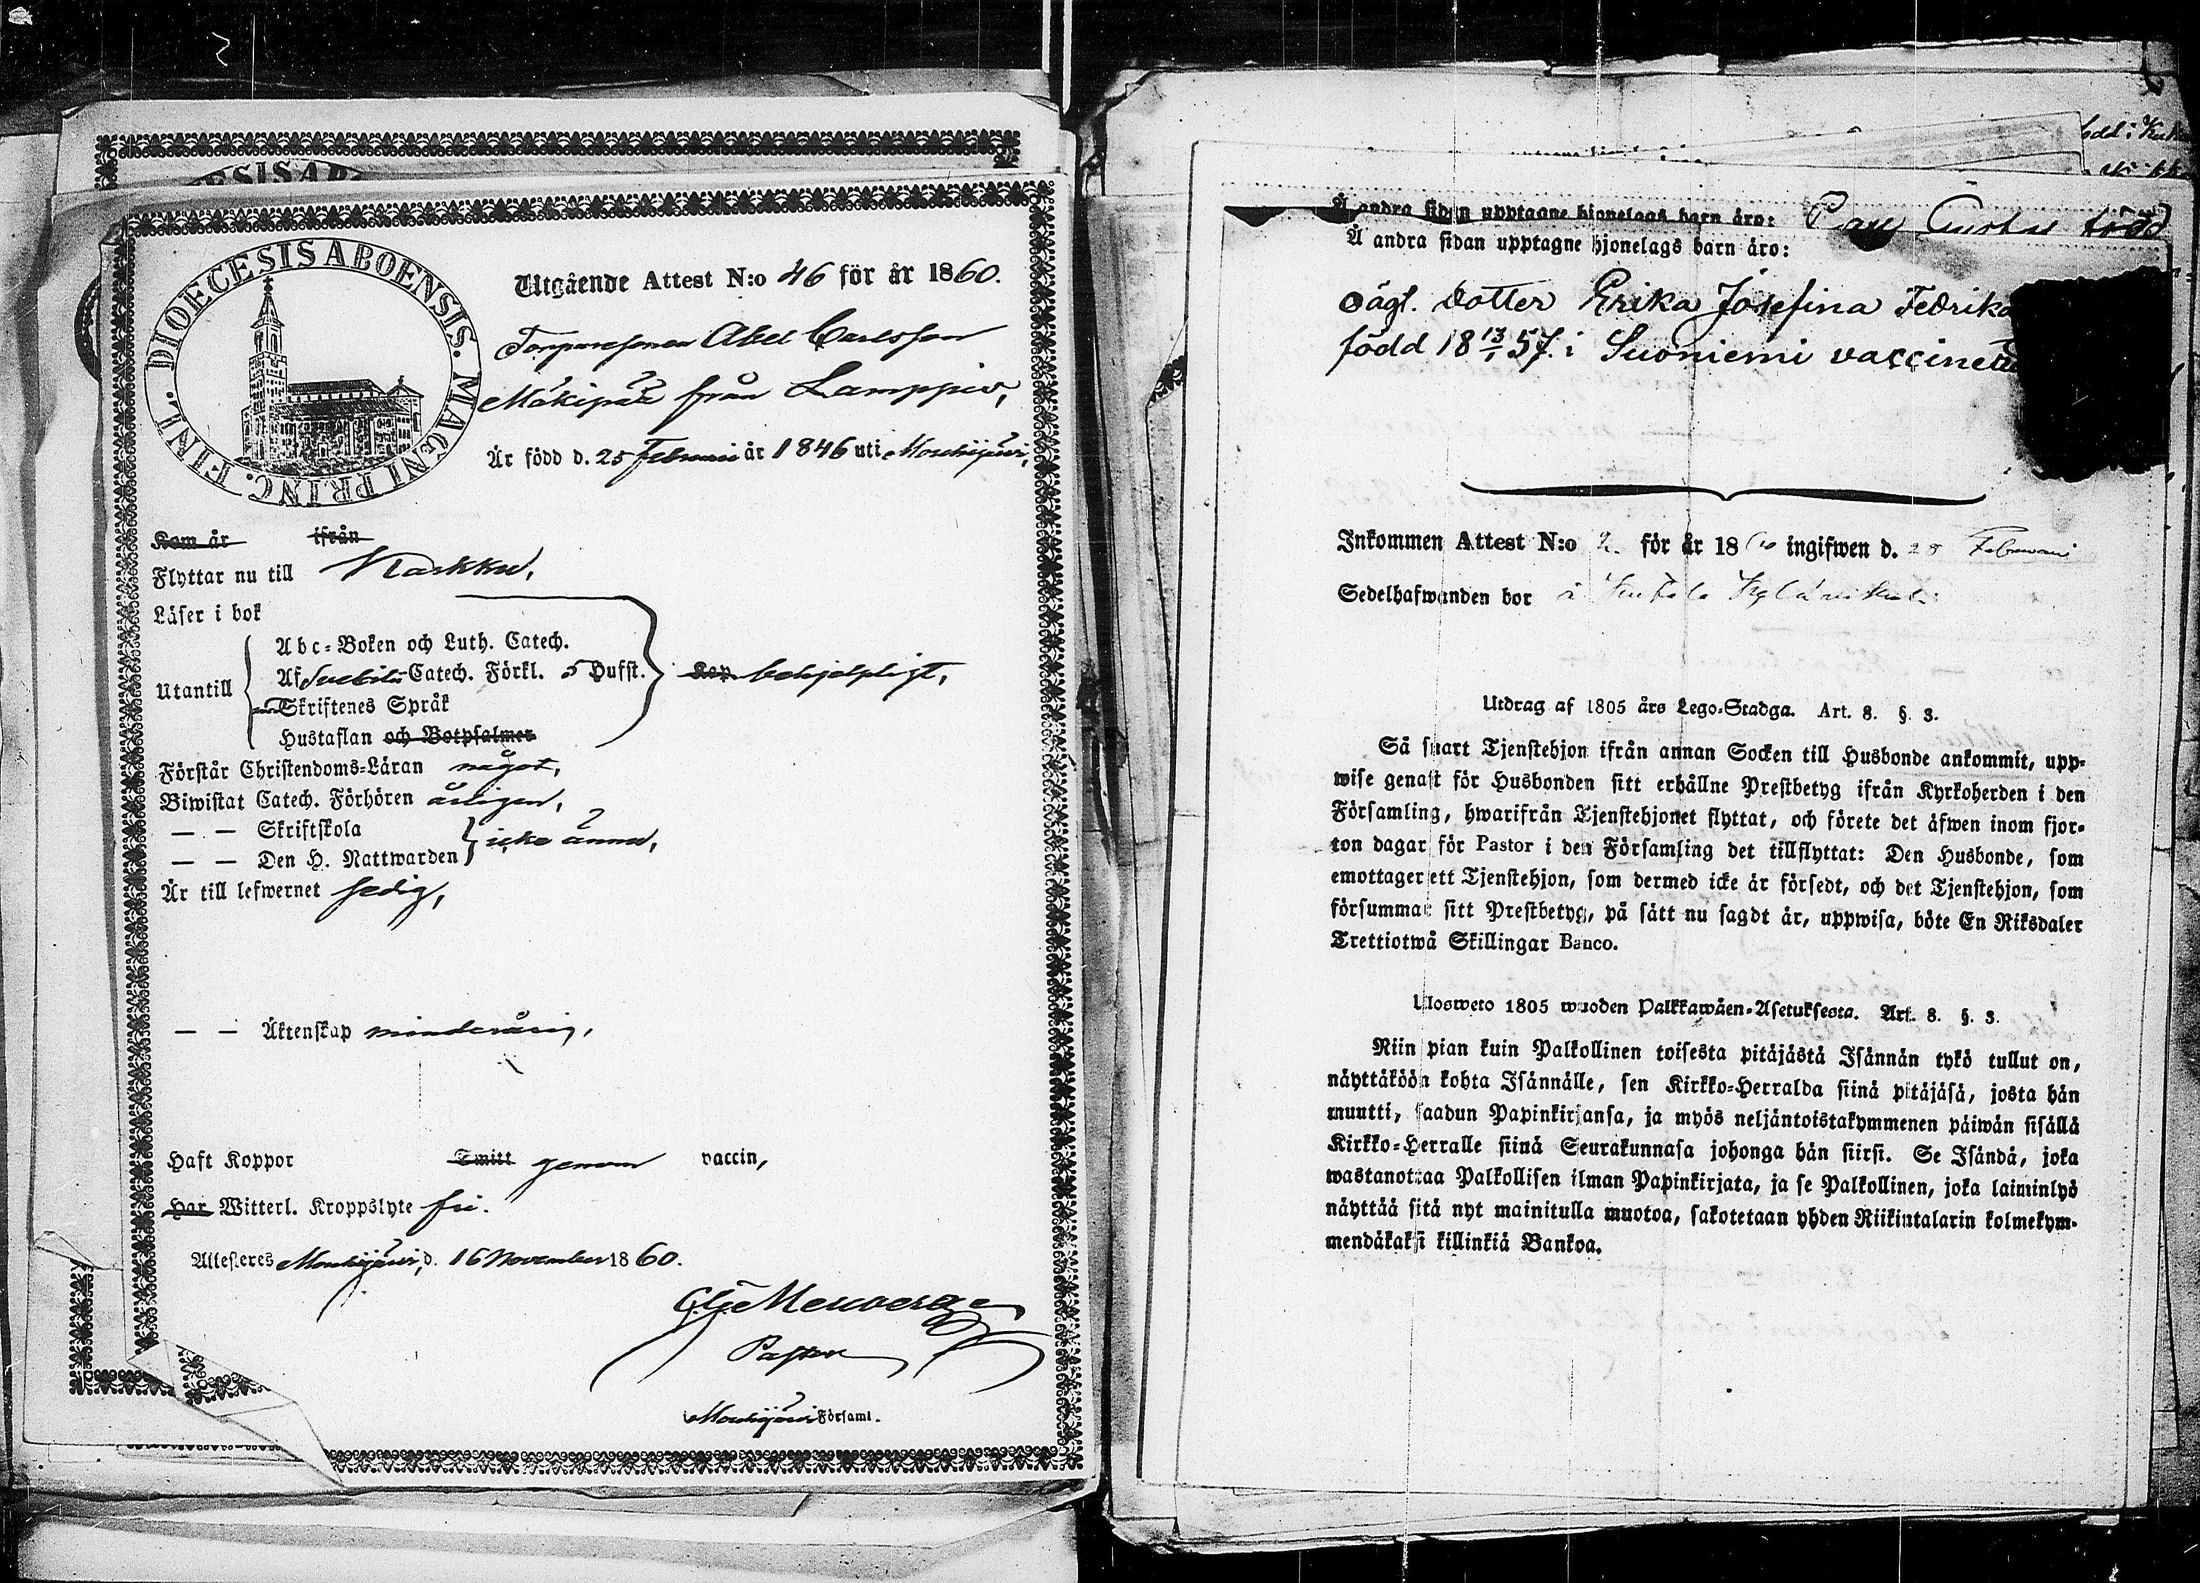 DIOECESIS ABOENSIS. MAGNI PRINC. FINL.
Utgående Attest N:o 46 för år 1860.
Torparesonen Abel Carlsson
Mäkipää från Lamppio,
Är född d. 25 Februari år 1846 uti Mouhijärvi,
Kom år ifrån
Flyttar nu till Karkku,
Läser i bok
Utantill
Abc-Boken och Luth. Catech.
Af Svebilii Catech. Förkl. 5 Hufst.
Skriftenes Språk
Hustaflan och Botpsalmer
behjelpligt,
Förstår Christendoms-Läran något,
Biwistat Catech. Förhören årligen,
— — Skriftskola
— — Den H. Nattwarden
icke ännu,
Är till lefwernet sedig,
— — Äktenskap minderårig,
Haft Koppor Smitt genom vaccin,
Har Witterl. Kroppslyte fri.
Attesteres Mouhijärvi, d. 16 November 1860.
Pastor
Mouhijärvi Församl.
Å andra sidan upptagne hjonelags barn äro: Gustaf född
Å andra sidan upptagne hjonelags barn äro:
oägt. dotter Erika Josefina Fedrika
född 18 13/1 57. i Suoniemi vaccinerad
Inkommen Attest N:o 2. för år 1860 ingifwen d. 28 Februari
Sedelhafwanden bor
Utdrag af 1805 års Lego-Stadga. Art. 8. §. 3.
Så snart Tjenstehjon ifrån annan Socken till Husbonde ankommit, upp-
wise genast för Husbonden sitt erhållne Prestbetyg ifrån Kyrkoherden i den
Församling, hwarifrån Tjenstehjonet flyttat, och förete det äfwen inom fjor-
ton dagar för Pastor i den Församling det tillflyttat: Den Husbonde, som
emottager ett Tjenstehjon, som dermed icke är försedt, och det Tjenstehjon, som
försummar sitt Prestbetyg, på sätt nu sagdt är, uppwisa, böte En Riksdaler
Trettiotwå Skillingar Banco.
Ulosweto 1805 wuoden Palkkawäen-Asetuksesta. Art. 8. §. 3.
Niin pian kuin Palkollinen toisesta pitäjästä Isännän tykö tullut on,
näyttäköön kohta Isännälle, sen Kirkko-Herralda siinä pitäjäsä, josta hän
muutti, saadun Papinkirjansa, ja myös neljäntoistakymmenen päiwän sisällä
Kirkko-Herralle siinä Seurakunnasa johonga hän siirsi. Se Isändä, joka
wastanottaa Palkollisen ilman Papinkirjata, ja se Palkollinen, joka laiminlyö
näyttää sitä nyt mainitulla muotoa, sakotetaan yhden Riikintalarin kolmekym-
mendäkaksi killinkiä Bankoa.